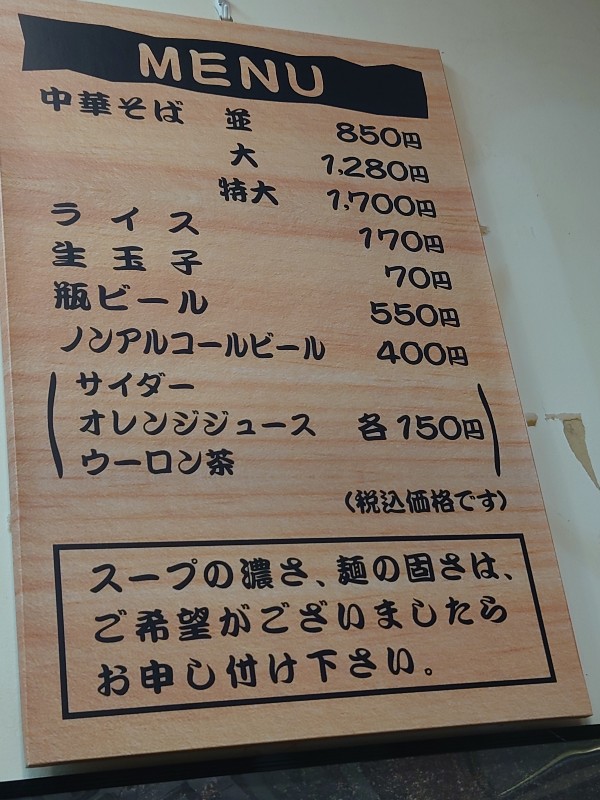 MENU
中華そば 並 850円
大 1,280円
特大 1,700円
ライス 170円
生玉子 70円
瓶ビール 550円
ノンアルコールビール 400円
サイダー
オレンジジュース 各150円
ウーロン茶
(税込価格です)
スープの濃さ、麺の固さは、
ご希望がございましたら
お申し付け下さい。